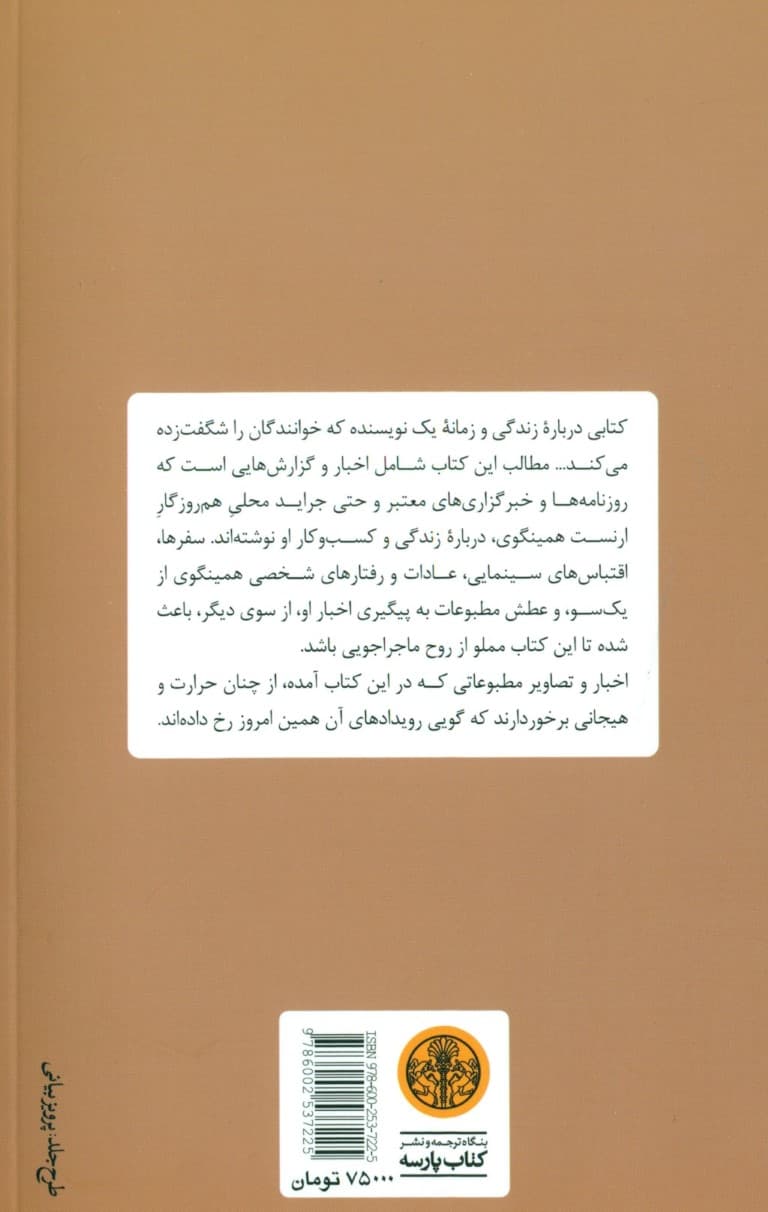 کتابی دربارهٔ زندگی و زمانهٔ یک نویسنده که خوانندگان را شگفت‌زده
می‌کند... مطالب این کتاب شامل اخبار و گزارش‌هایی است که
روزنامه‌ها و خبرگزاری‌های معتبر و حتی جراید محلیِ هم‌روزگارِ
ارنست همینگوی، دربارهٔ زندگی و کسب‌وکار او نوشته‌اند. سفرها،
اقتباس‌های سینمایی، عادات و رفتارهای شخصی همینگوی از
یک‌سو، و عطش مطبوعات به پیگیری اخبار او، از سوی دیگر، باعث
شده تا این کتاب مملو از روح ماجراجویی باشد.
اخبار و تصاویر مطبوعاتی که در این کتاب آمده، از چنان حرارت و
هیجانی برخوردارند که گویی رویدادهای آن همین امروز رخ داده‌اند.
ISBN 978-600-253-722-5
9786002537225
بنگاه ترجمه و نشر
کتاب پارسه
۷۵۰۰۰ تومان
طرح جلد: پرویز بیانی